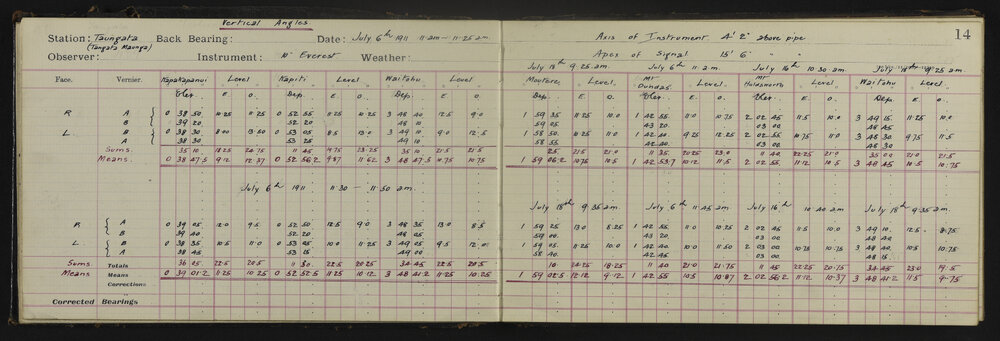 Vertical Angles
Station: Taungata Back Bearing: Date: July 6th 1911 11 am - 11.25 am
(Tangata Maunga)
Observer: Instrument: 10" Everest Weather:
Face. Vernier. Kapakapanui Level Kapiti Level Waitahu Level
Elev. E. O. Dep. E. O. Dep. E. O.
R A 0 38 50 10.25 11.25 0 52 55 11.25 10.25 3 48 40 12.5 9.0
B 39 20 52 20 48 10
L B 0 38 30 8.00 13.50 0 53 05 8.5 13.0 3 49 10 9.0 12.5
A 38 30 53 25 49 10
Sums. 35 10 18.25 24.75 11 45 19.75 23.25 35 10 21.5 21.5
Means. 0 38 47.5 9.12 12.37 0 52 56.2 9.87 11.62 3 48 47.5 10.75 10.75
July 6th 1911 11.30 - 11.50 am.
R A 0 39 05 12.0 9.5 0 52 50 12.5 9.0 3 48 35 13.0 8.5
B 39 40 52 20 48 05
L B 0 38 35 10.5 11.0 0 53 05 10.0 11.25 3 49 05 9.5 12.0
A 38 45 53 15 49 00
Sums. Totals 36 05 22.5 20.5 11 30 22.5 20.25 34 45 22.5 20.5
Means Means 0 39 01.2 11.25 10.25 0 52 52.5 11.25 10.12 3 48 41.2 11.25 10.25
Corrections
Corrected Bearings
Axis of Instrument 4' 2" above pipe
14
Apex of Signal 15' 6" " "
July 18th 9.25 am. July 6th 11 am. July 16th 10.30 am. July 18th 9.25 am
Moutere Level. Mt Dundas. Level. Mt Holdsworth Level. Waitahu Level.
Dep. E. O. Elev. E. O. Elev. E. O. Dep. E. O.
1 59 35 11.25 10.0 1 42 55 11.0 10.75 2 02 45 11.5 10.5 3 49 15 11.25 10.0
59 10 43 20 03 00 48 45
1 58 50 10.25 11.5 1 42 40 9.25 12.25 2 02 55 10.75 11.0 3 48 30 9.75 11.5
58 55 42 40 03 00 48 30
25 21.5 21.5 11 35 20.25 23.0 11 40 22.25 21.0 35 00 21.0 21.5
1 59 06.2 10.75 10.5 1 42 53.7 10.12 11.5 2 02 55 11.12 10.5 3 48 45 10.5 10.75
July 18th 9.35 am. July 6th 11.45 am July 16th 10.40 am July 18th 9.35 am.
1 59 25 13.0 8.25 1 42 55 11.0 10.25 2 02 45 11.5 10.0 3 49 10 12.5 8.75
59 00 43 20 03 00 48 40
1 59 05 11.25 10.0 1 42 40 10.0 11.50 2 03 00 10.75 10.75 3 48 40 10.5 10.75
58 40 42 45 03 00 48 15
10 24.25 18.25 11 40 21.0 21.75 11 45 22.25 20.75 34 45 23.0 19.5
1 59 02.5 12.12 9.12 1 42 55 10.5 10.87 2 02 56.2 11.12 10.37 3 48 41.2 11.5 9.75